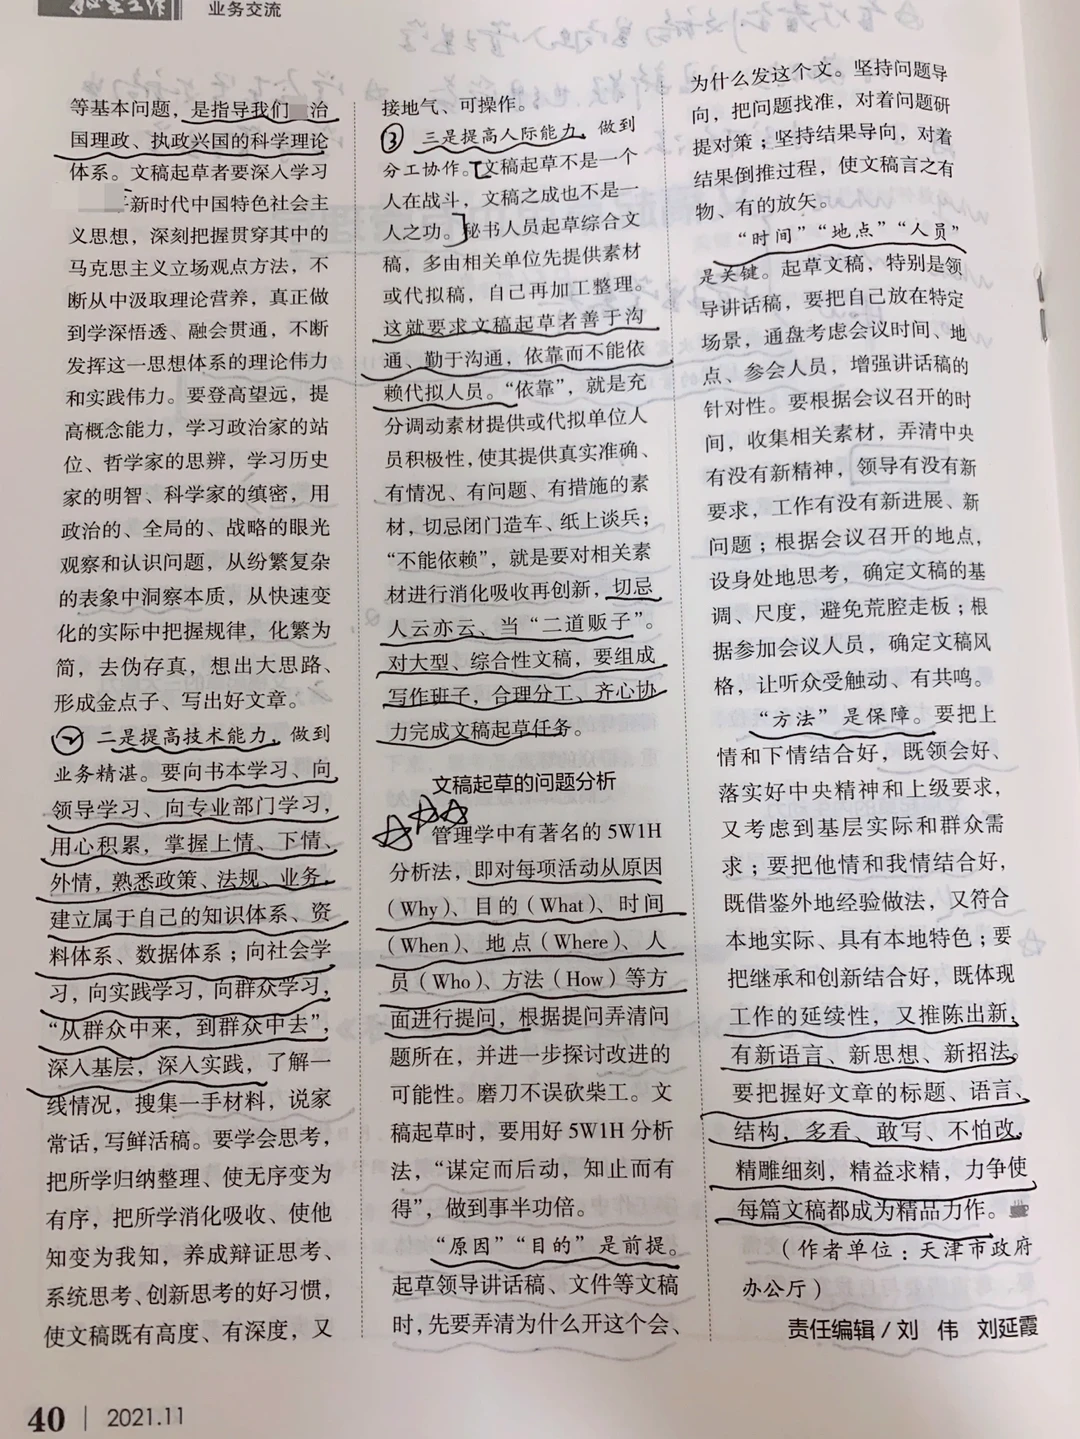 业务交流
等基本问题，是指导我们 治
国理政、执政兴国的科学理论
体系。文稿起草者要深入学习
新时代中国特色社会主
义思想，深刻把握贯穿其中的
马克思主义立场观点方法，不
断从中汲取理论营养，真正做
到学深悟透、融会贯通，不断
发挥这一思想体系的理论伟力
和实践伟力。要登高望远，提
高概念能力，学习政治家的站
位、哲学家的思辨，学习历史
家的明智、科学家的缜密，用
政治的、全局的、战略的眼光
观察和认识问题，从纷繁复杂
的表象中洞察本质，从快速变
化的实际中把握规律，化繁为
简，去伪存真，想出大思路、
形成金点子、写出好文章。
二是提高技术能力，做到
业务精湛。要向书本学习、向
领导学习、向专业部门学习，
用心积累，掌握上情、下情、
外情，熟悉政策、法规、业务，
建立属于自己的知识体系、资
料体系、数据体系；向社会学
习，向实践学习，向群众学习，
“从群众中来，到群众中去”，
深入基层，深入实践，了解一
线情况，搜集一手材料，说家
常话，写鲜活稿。要学会思考，
把所学归纳整理、使无序变为
有序，把所学消化吸收、使他
知变为我知，养成辩证思考、
系统思考、创新思考的好习惯，
使文稿既有高度、有深度，又
接地气、可操作。
③ 三是提高人际能力，做到
分工协作。文稿起草不是一个
人在战斗，文稿之成也不是一
人之功。秘书人员起草综合文
稿，多由相关单位先提供素材
或代拟稿，自己再加工整理。
这就要求文稿起草者善于沟
通、勤于沟通，依靠而不能依
赖代拟人员。“依靠”，就是充
分调动素材提供或代拟单位人
员积极性，使其提供真实准确、
有情况、有问题、有措施的素
材，切忌闭门造车、纸上谈兵；
“不能依赖”，就是要对相关素
材进行消化吸收再创新，切忌
人云亦云、当“二道贩子”。
对大型、综合性文稿，要组成
写作班子，合理分工、齐心协
力完成文稿起草任务。
文稿起草的问题分析
管理学中有著名的 5W1H
分析法，即对每项活动从原因
（Why）、目的（What）、时间
（When）、地点（Where）、人
员（Who）、方法（How）等方
面进行提问，根据提问弄清问
题所在，并进一步探讨改进的
可能性。磨刀不误砍柴工。文
稿起草时，要用好 5W1H 分析
法，“谋定而后动，知止而有
得”，做到事半功倍。
“原因”“目的”是前提。
起草领导讲话稿、文件等文稿
时，先要弄清为什么开这个会、
为什么发这个文。坚持问题导
向，把问题找准，对着问题研
提对策；坚持结果导向，对着
结果倒推过程，使文稿言之有
物、有的放矢。
“时间”“地点”“人员”
是关键。起草文稿，特别是领
导讲话稿，要把自己放在特定
场景，通盘考虑会议时间、地
点、参会人员，增强讲话稿的
针对性。要根据会议召开的时
间，收集相关素材，弄清中央
有没有新精神，领导有没有新
要求，工作有没有新进展、新
问题；根据会议召开的地点，
设身处地思考，确定文稿的基
调、尺度，避免荒腔走板；根
据参加会议人员，确定文稿风
格，让听众受触动、有共鸣。
“方法”是保障。要把上
情和下情结合好，既领会好、
落实好中央精神和上级要求，
又考虑到基层实际和群众需
求；要把他情和我情结合好，
既借鉴外地经验做法，又符合
本地实际、具有本地特色；要
把继承和创新结合好，既体现
工作的延续性，又推陈出新，
有新语言、新思想、新招法。
要把握好文章的标题、语言、
结构，多看、敢写、不怕改，
精雕细刻，精益求精，力争使
每篇文稿都成为精品力作。
（作者单位：天津市政府
办公厅）
责任编辑 / 刘 伟 刘延霞
40 | 2021.11